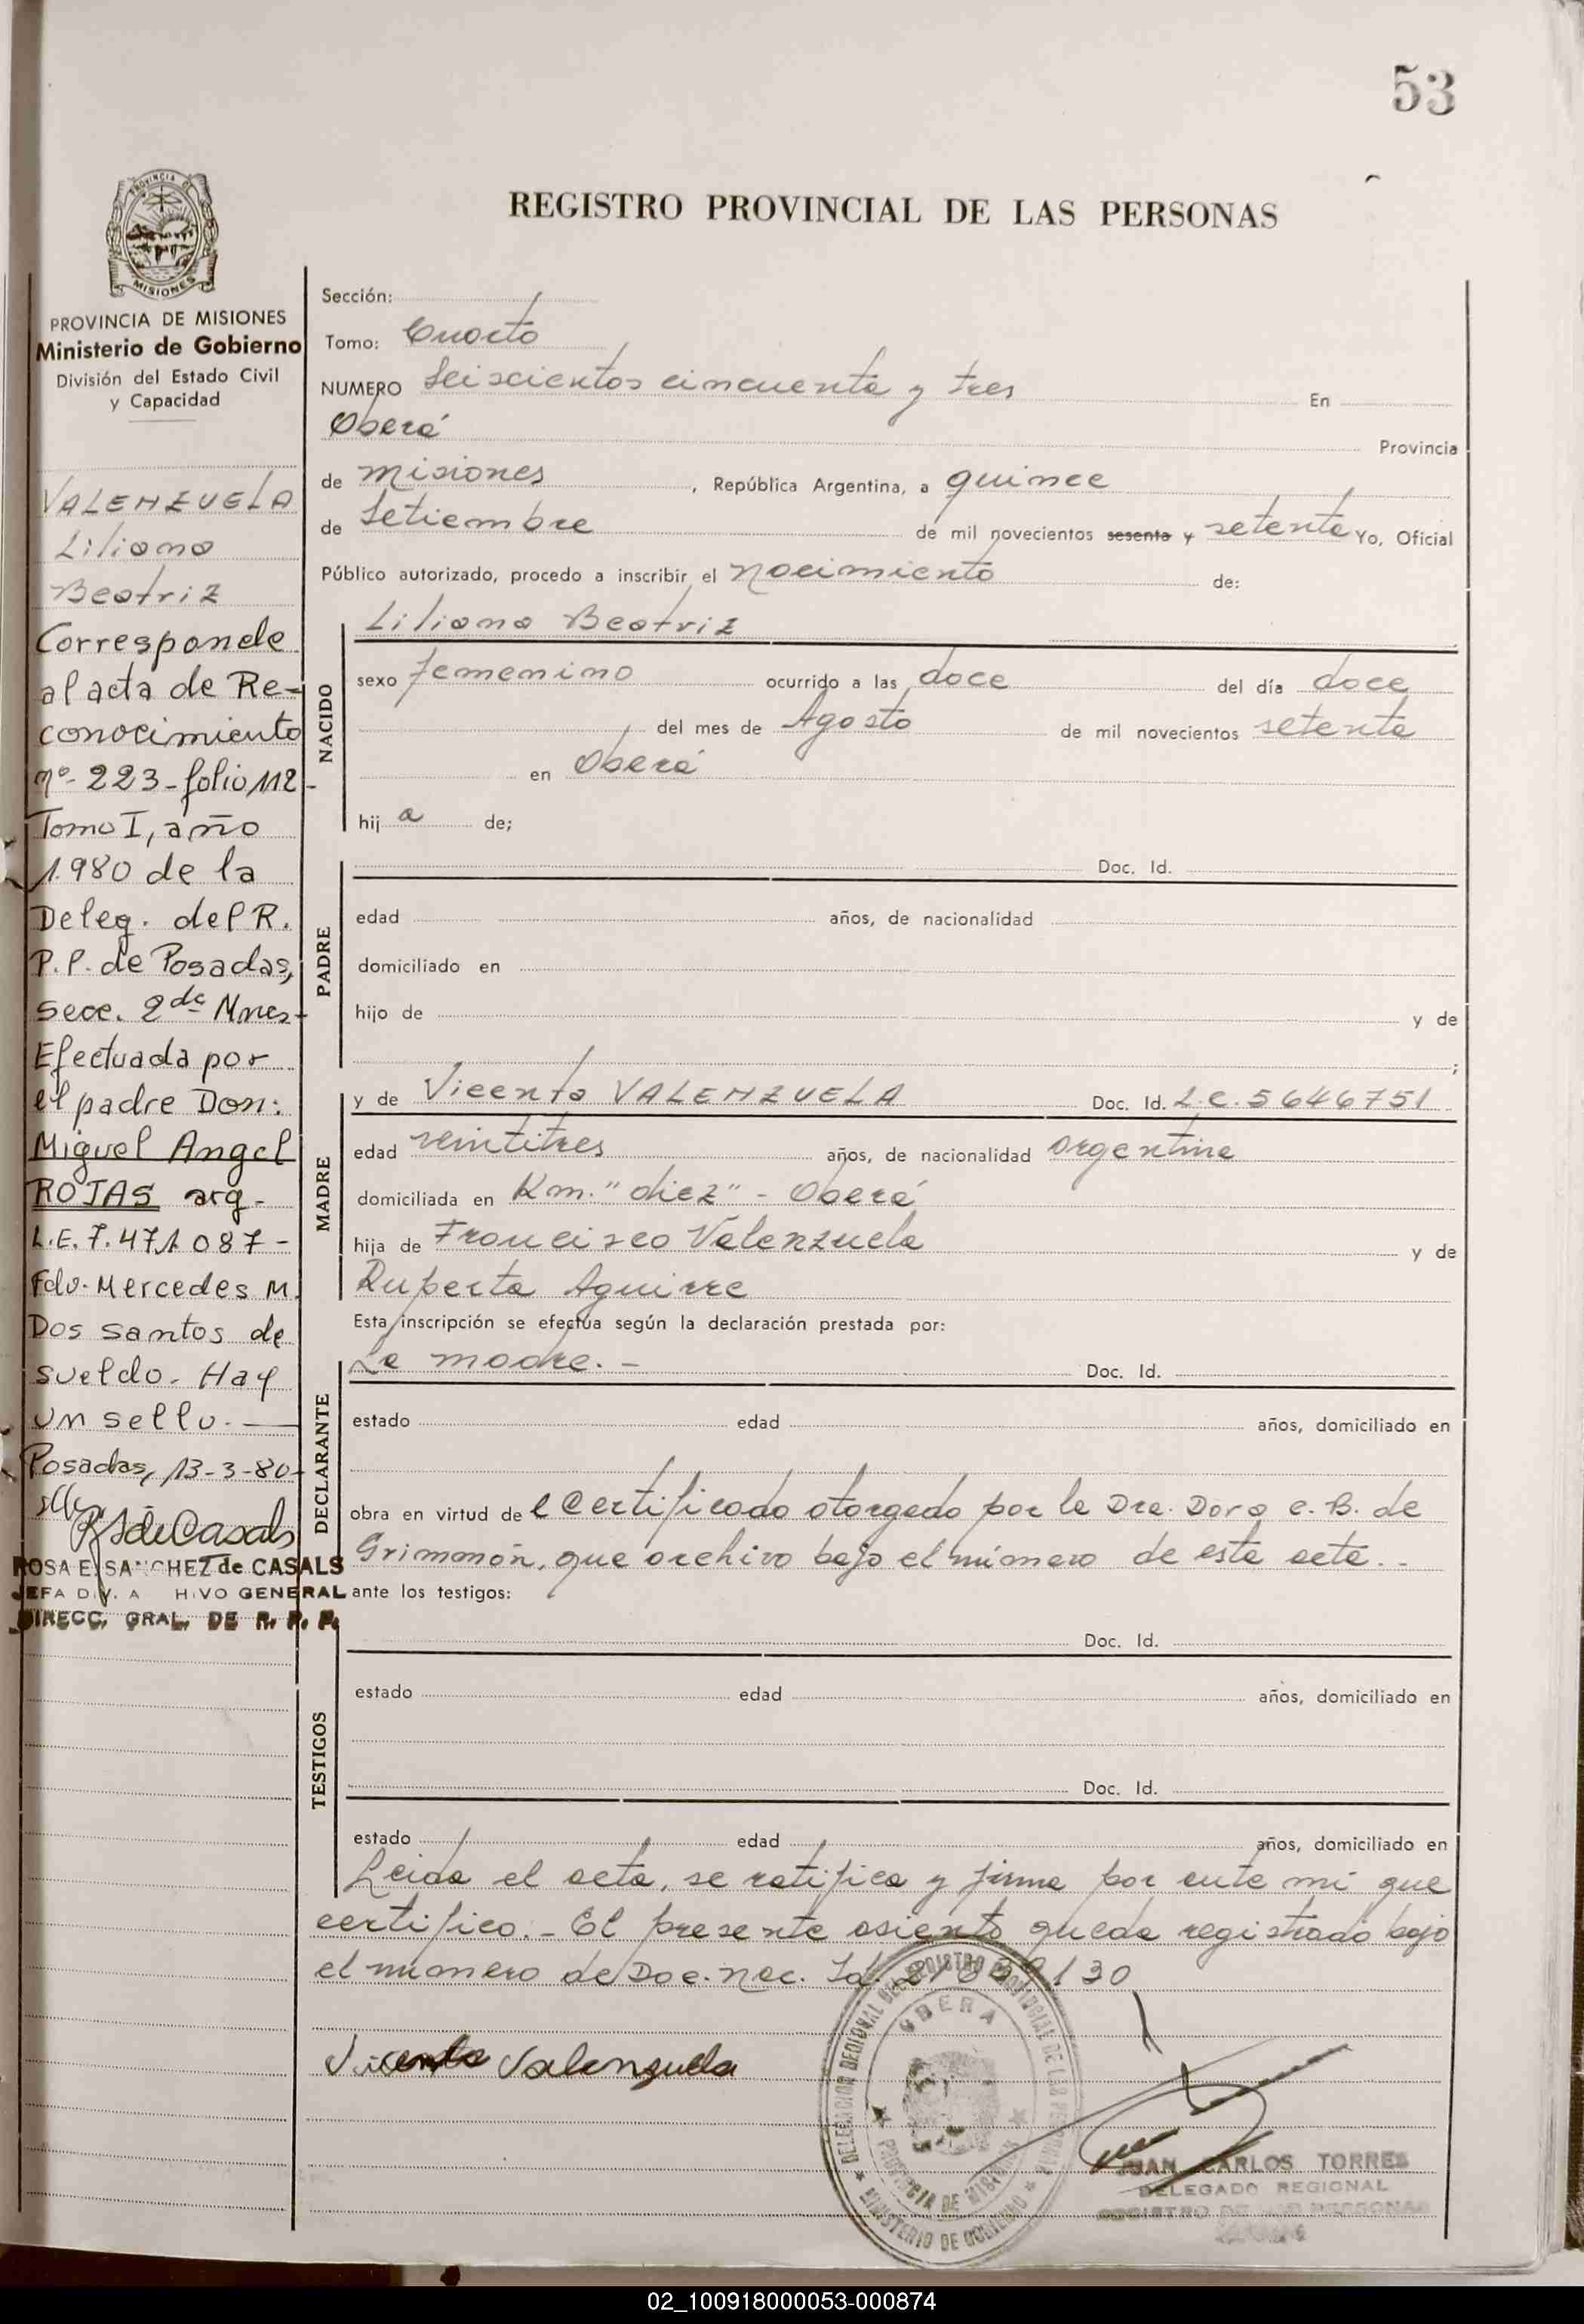 53
REGISTRO PROVINCIAL DE LAS PERSONAS
PROVINCIA DE
MISIONES
PROVINCIA DE MISIONES
Ministerio de Gobierno
División del Estado Civil
y Capacidad
VALENZUELA
Liliana
Beatriz
Corresponde
al acta de Re-
conocimiento
nº- 223 - folio 112 -
Tomo I, año
1.980 de la
Deleg. del R.
P.P. de Posadas,
Secc. 2da Mnes-
Efectuada por
el padre Don:
Miguel Angel
ROJAS arg-
L.E. 7.471 087 -
Fdo. Mercedes M.
Dos santos de
sueldo - Hay
un sello. —
Posadas, 13-3-80-
RSdeCasals
ROSA E. SANCHEZ de CASALS
JEFA DIV. ARCHIVO GENERAL
DIRECC. GRAL. DE R. P. P.
Sección:
Tomo: Cuarto
NUMERO Seiscientos cincuenta y tres En
Oberá Provincia
de misiones , República Argentina, a quince
de Setiembre de mil novecientos sesenta y setenta Yo, Oficial
Público autorizado, procedo a inscribir el nacimiento de:
NACIDO
Liliana Beatriz
sexo femenino ocurrido a las doce del día doce
del mes de Agosto de mil novecientos setenta
en Oberá
hij a de;
PADRE
Doc. Id.
edad años, de nacionalidad
domiciliado en
hijo de y de
;
MADRE
y de Vicenta VALENZUELA Doc. Id. L.C. 5646751
edad veintitres años, de nacionalidad argentina
domiciliada en Km. "diez" - Oberá
hija de Francisco Valenzuela y de
Ruperta Aguirre
Esta inscripción se efectúa según la declaración prestada por:
DECLARANTE
La madre. - Doc. Id.
estado edad años, domiciliado en
obra en virtud de l Certificado otorgado por la Dra. Dora C. B. de
Grimmón, que archivo bajo el número de esta acta. -
ante los testigos:
TESTIGOS
Doc. Id.
estado edad años, domiciliado en
Doc. Id.
estado edad años, domiciliado en
Leida el acta, se ratifica y firma por ante mi que
certifico. - El presente asiento queda registrado bajo
el número de Doc. nac. Id.
Vicenta Valenzuela
DELEGACION REGIONAL DEL REGISTRO PROVINCIAL DE LAS PERSONAS
OBERA
PROVINCIA DE MISIONES
MINISTERIO DE GOBIERNO
JUAN CARLOS TORRES
DELEGADO REGIONAL
REGISTRO DE LAS PERSONAS
02_100918000053-000874